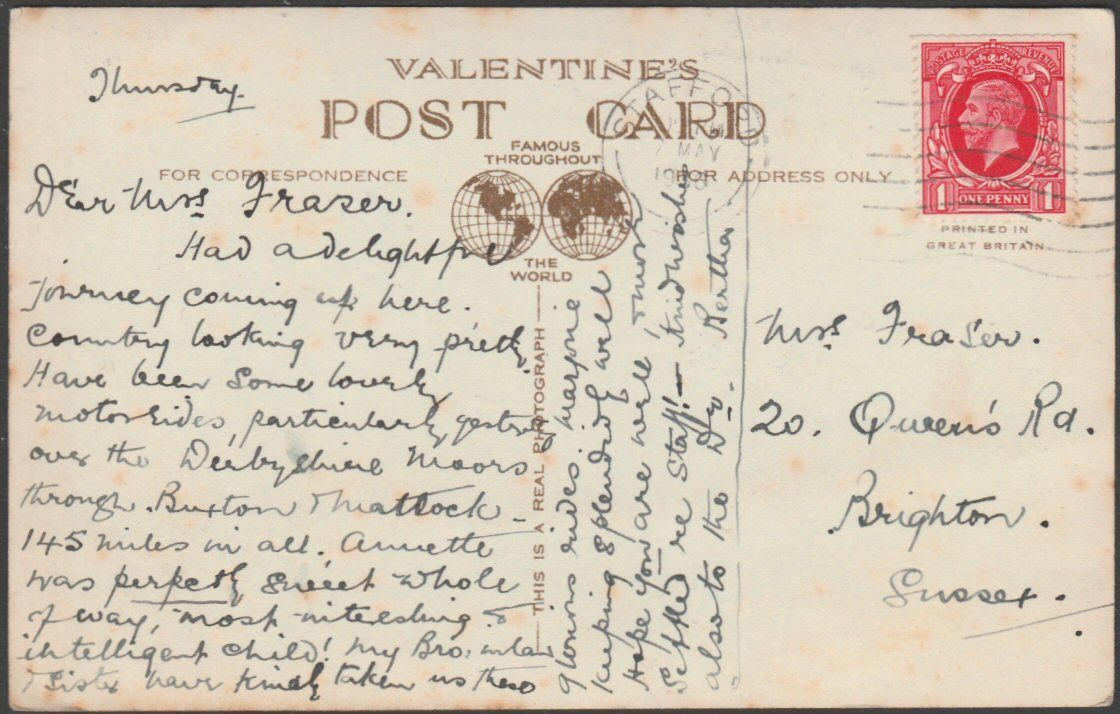 VALENTINE'S
POST CARD
FAMOUS
THROUGHOUT
THE
WORLD
FOR CORRESPONDENCE
FOR ADDRESS ONLY
THIS IS A REAL PHOTOGRAPH
STAFFORD
MAY
POSTAGE REVENUE
1 ONE PENNY 1
PRINTED IN
GREAT BRITAIN
Thursday.
Dear Mrs Fraser.
Had a delightful
journey coming up here.
Country looking very pretty.
Have been some lovely
motor rides, particularly yesterday
over the Derbyshire Moors
through Buxton & Matlock
145 miles in all. Annette
was perfectly sweet whole
of way, most interesting &
intelligent child! My Bro: in law
& Sister have kindly taken us these
glorious rides. Marjorie
keeping splendidly well
Hope you are well, & more
settled re Staff! — Kind wishes
also to the Dr. Bertha
Mrs Fraser.
20. Queen's Rd.
Brighton.
Sussex.